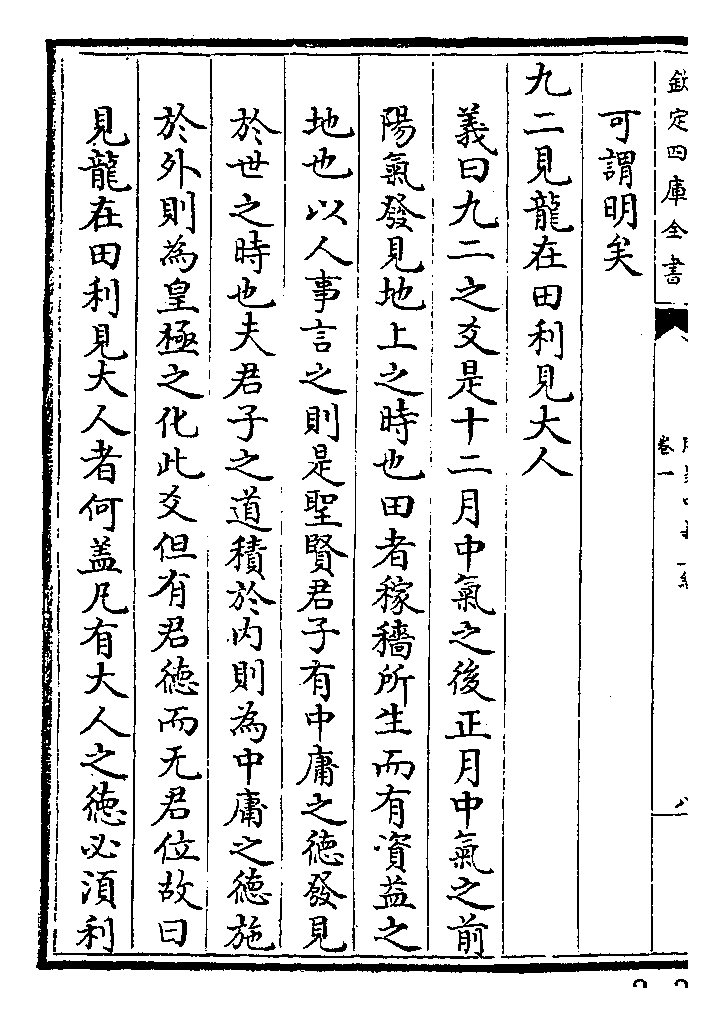 欽定四庫全書
卷一
可謂明矣
九二見龍在田利見大人
義曰九二之爻是十二月中氣之後正月中氣之前
陽氣發見地上之時也田者稼穡所生而有資益之
地也以人事言之則是聖賢君子有中庸之德發見
於世之時也夫君子之道積於内則為中庸之德施
於外則為皇極之化此爻但有君德而无君位故曰
見龍在田利見大人者何盖凡有大人之德必須利